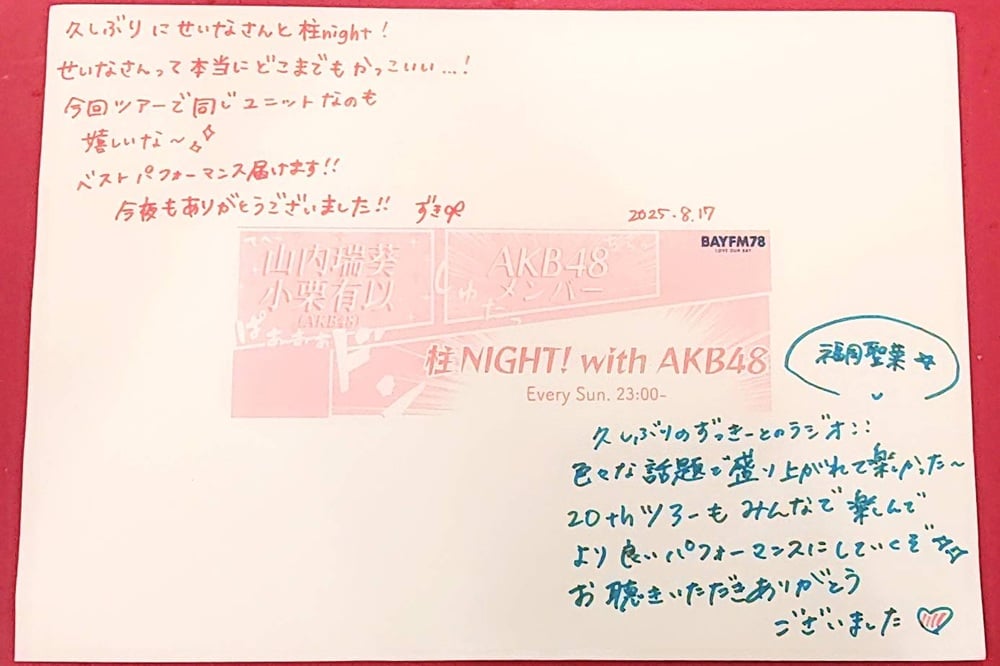 久しぶりにせいなさんと柱night!
せいなさんって本当にどこまでもかっこいい…!
今回ツアーで同じユニットなのも
嬉しいな〜
ベストパフォーマンス届けます!!
今夜もありがとうございました!! ずき
2025.8.17
BAYFM78
LOVE OUR BAY
山内瑞葵
小栗有以
(AKB48)
AKB48
メンバー
ぱぁぁぁぁ
ド
柱NIGHT! with AKB48
Every Sun. 23:00-
福岡聖菜☆
久しぶりのずっきーとのラジオ::
色々な話題で盛り上がれて楽しかった〜
20thツアーもみんなで楽しんで
より良いパフォーマンスにしていくぞ☆☆
お聴きいただきありがとう
ございました♡